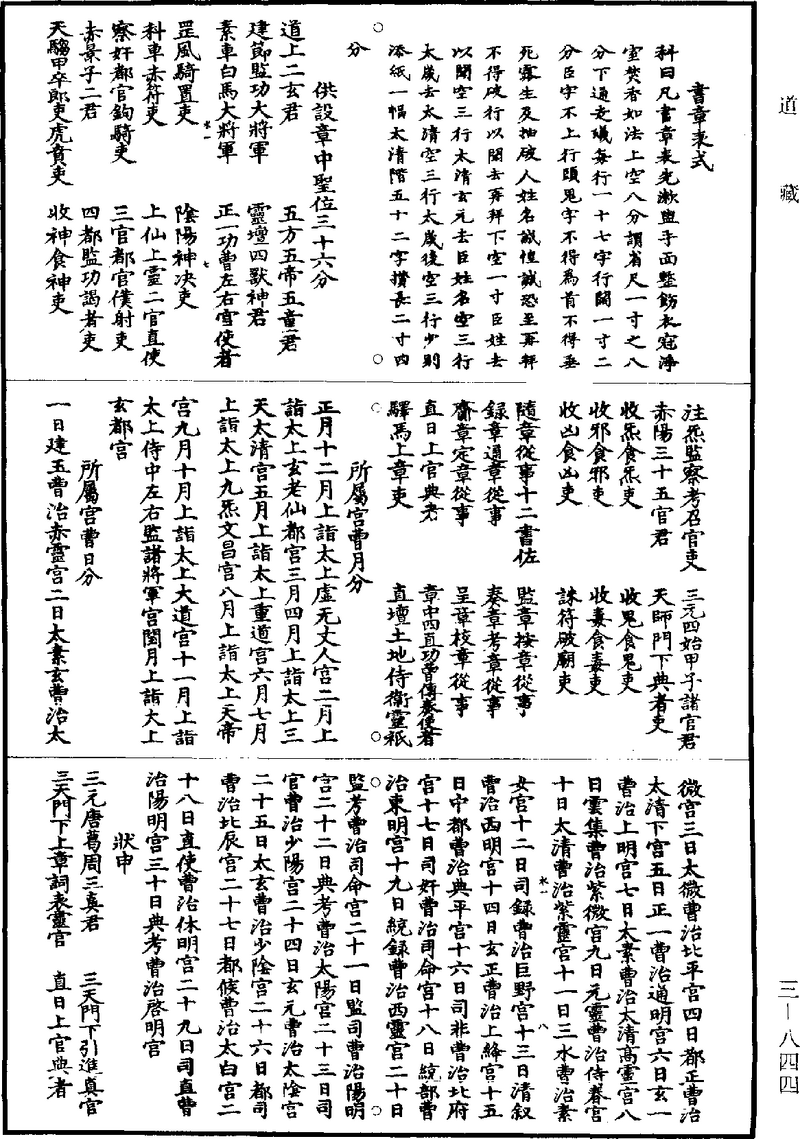 道藏
書章表式
科曰凡書章表先漱盥手面整飭衣冠淨
室焚香如法上空八分謂省尺一寸之八
分下通走蟻每行一十七字行闊一寸二
分臣字不上行頭鬼字不得為首不得垂
死露生及抽破人姓名誠惶誠恐至再拜
不得破行以聞去再拜下空一寸臣姓去
以聞空三行太清玄元去臣姓名空三行
太歲去太清空三行太歲後空三行少則
添紙一幅太清階五十二字攢長二寸四
分
供設章中聖位三十六分
道上二玄君　五方五帝五童君
建節監功大將軍　靈壇四獸神君
素車白馬大將軍　正一功曹左右官使者
罡風騎置吏　陰陽神决吏
科車赤符吏　上仙上靈二官直使
察奸都官鉤騎吏　三官都官僕射吏
赤景子二君　四都監功謁者吏
天騶甲卒郎吏虎賁吏　收神食神吏
注炁監察考召官吏　三元四始甲子諸官君
赤陽三十五官君　天師門下典者吏
收炁食炁吏　收鬼食鬼吏
收邪食邪吏　收毒食毒吏
收凶食凶吏　誅符破廟吏
隨章從事十二書佐　監章按章從事
録章通章從事　奏章考章從事
齎章定章從事　呈章校章從事
直日上官典者　章中四直功曹傳奏使者
驛馬上章吏　直壇土地侍衛靈祇
所屬宫曹月分
正月十二月上詣太上虚无丈人宫二月上
詣太上玄老仙都宫三月四月上詣太上三
天太清宫五月上詣太上重道宫六月七月
上詣太上九炁文昌宫八月上詣太上天帝
宫九月十月上詣太上大道宫十一月上詣
太上侍中左右監諸將軍宫閏月上詣太上
玄都宫
所屬宫曹日分
一日建五曹治赤靈宫二日太素玄曹治太
微宫三日太微曹治北平宫四日都正曹治
太清下宫五日正一曹治通明宫六日玄一
曹治上明宫七日太素曹治太清髙靈宫八
日雲集曹治紫微宫九日元靈曹治侍春宫
十日太清曹治紫靈宫十一日三水曹治素
女宫十二日司録曹治巨野宫十三日清叙
曹治西明宫十四日玄正曹治上絳宫十五
日中都曹治典平宫十六日司非曹治北府
宫十七日司奸曹治司命宫十八日統部曹
治東明宫十九日統録曹治西靈宫二十日
監考曹治司命宫二十一日監司曹治陽明
宫二十二日典考曹治太陽宫二十三日司
官曹治少陽宫二十四日玄元曹治太陰宫
二十五日太玄曹治少陰宫二十六日都司
曹治北辰宫二十七日都候曹治太白宫二
十八日直使曹治休明宫二十九日司直曹
治陽明宫三十日典考曹治啓明宫
狀申
三元唐葛周三真君　三天門下引進真官
三天門下上章詞表靈官　直日上官典者
三—八四四